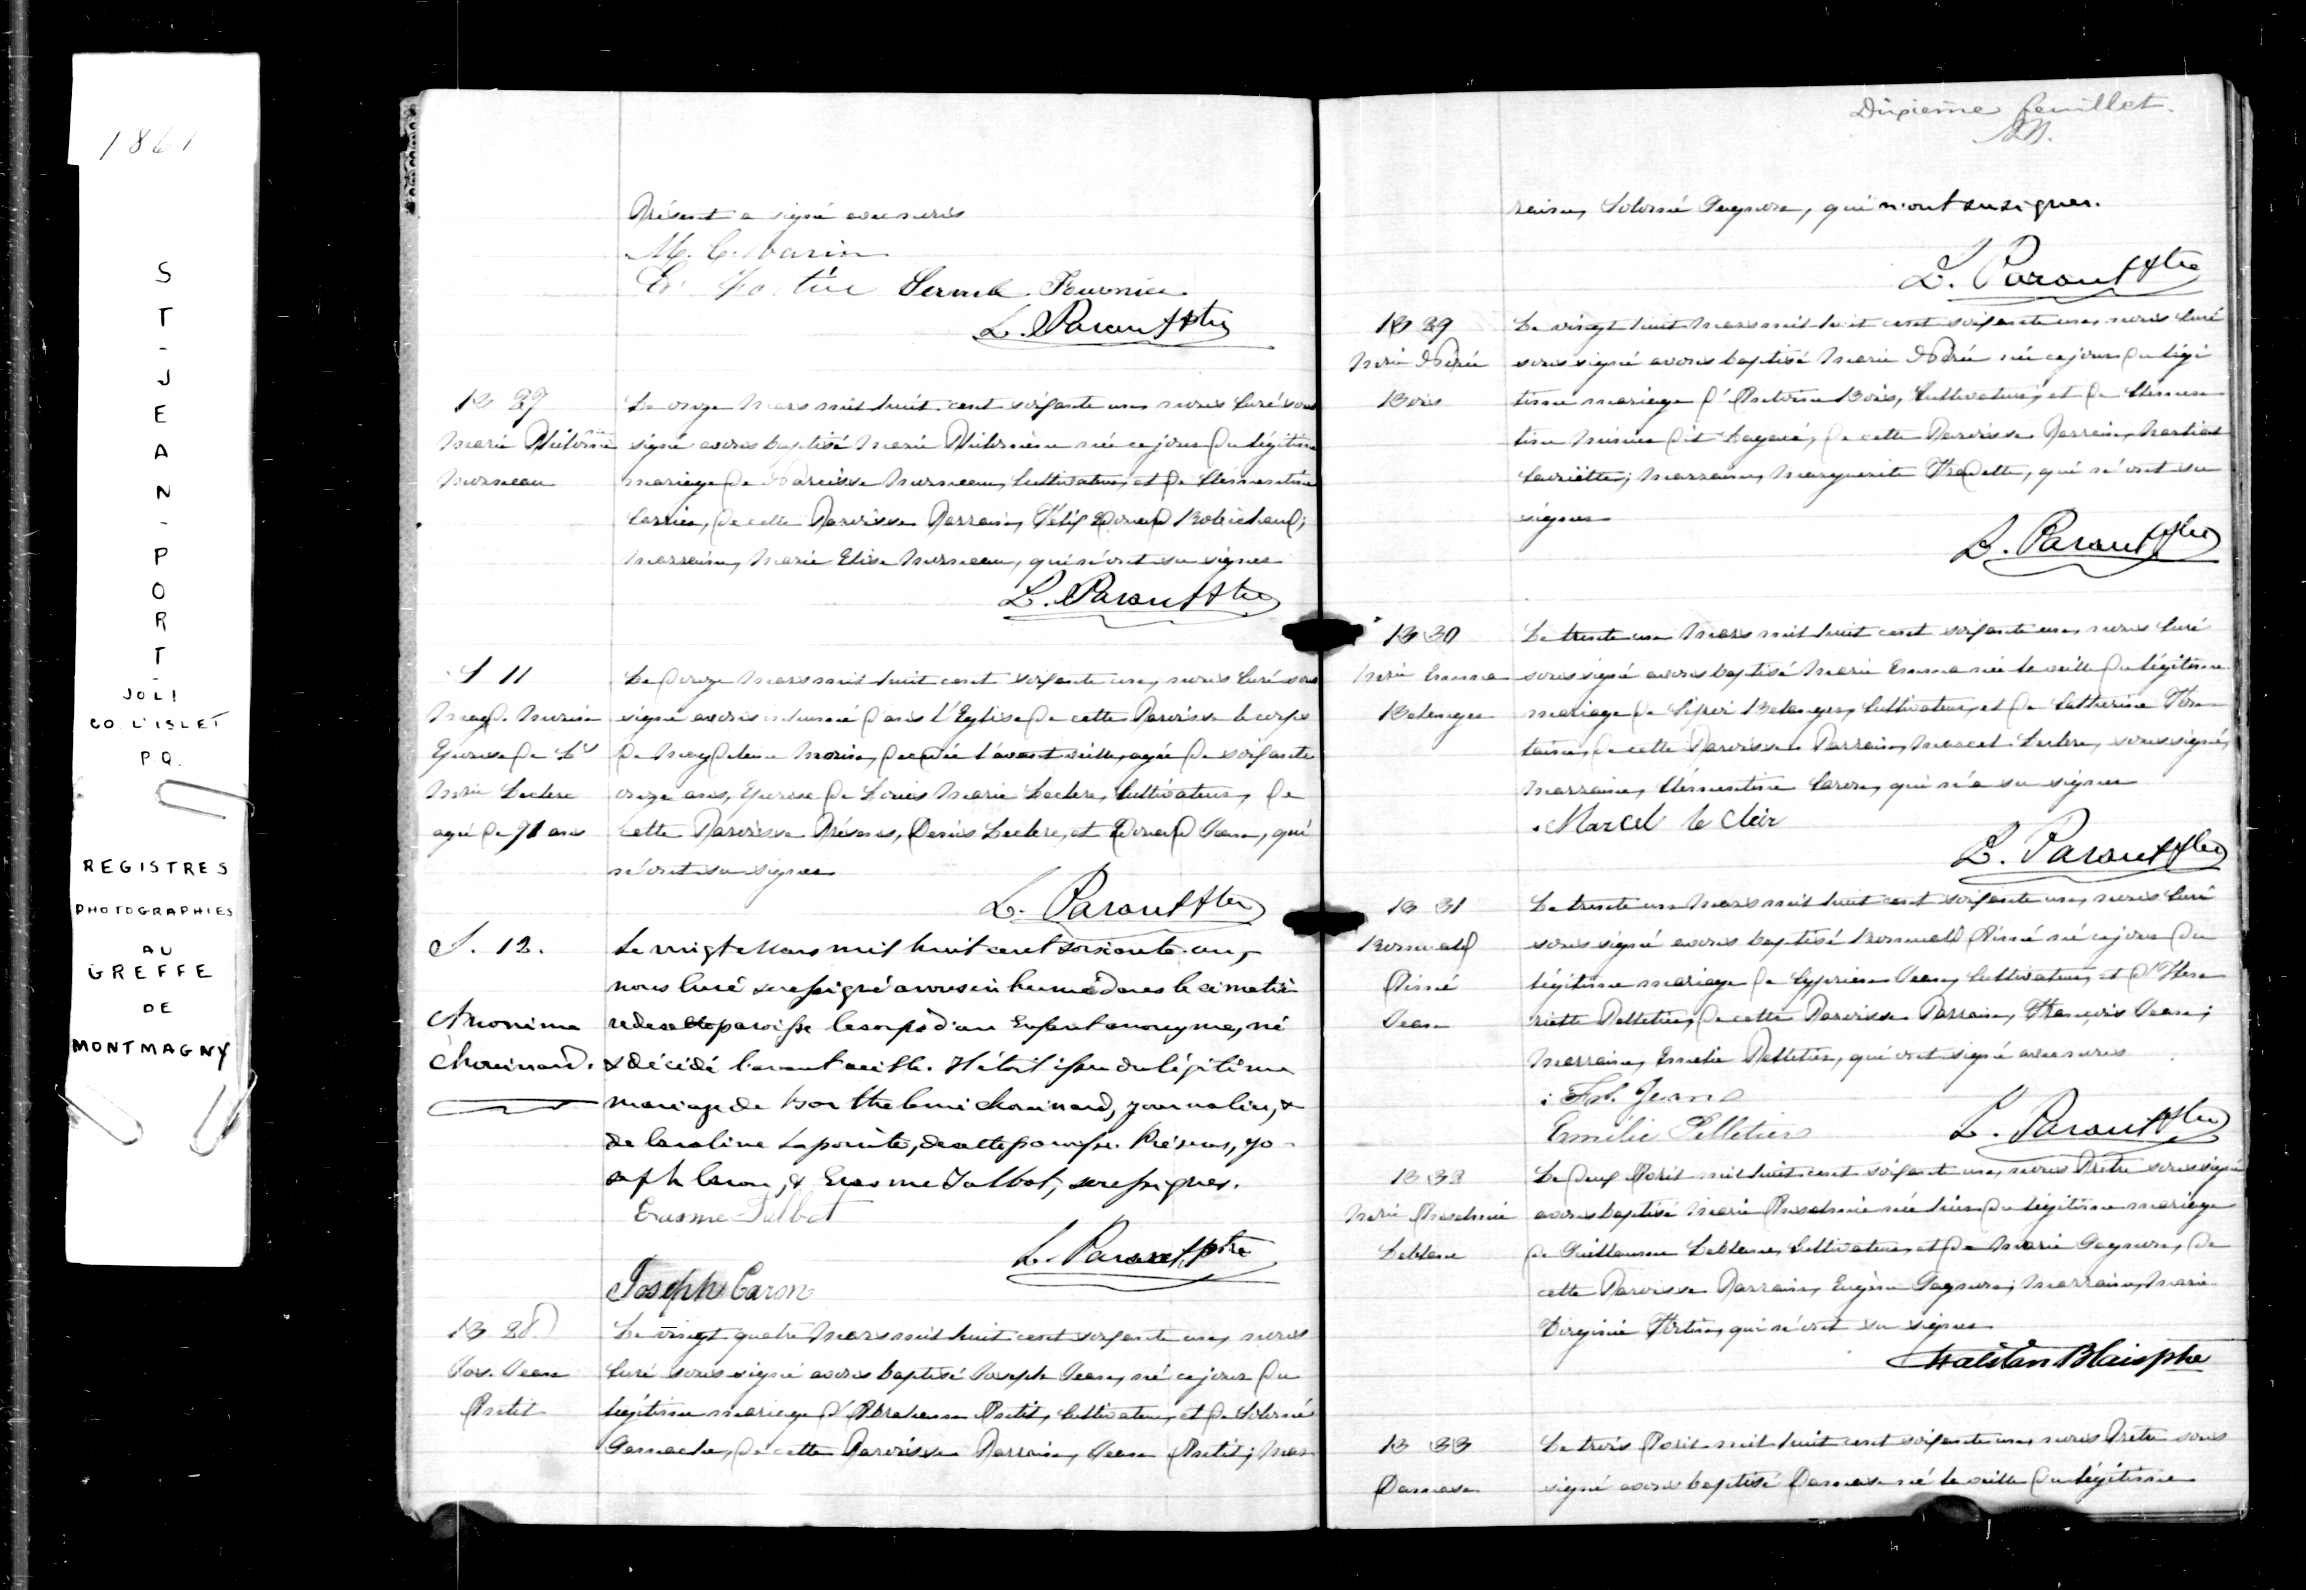 1861
ST-JEAN-PORT-
JOLI
CO. L'ISLET
P Q.
REGISTRES
PHOTOGRAPHIES
AU
GREFFE
DE
MONTMAGNY
Présent a signé avec nous
Fournier
L. Parant Ptre
B 27
Marie Philomène
Morneau
Le onze Mars mil huit cent soixante un, nous Curé sous
signé avons baptisé Marie Philomène née ce jour du légitime
mariage de Narcisse Morneau, Cultivateur, et de Clémentine
Carrier, de cette Paroisse Parrain, Félix Edouard Robichaud;
Marraine, Marie Elise Morneau, qui n'ont su signer
L. Parant Ptre
S 11
Magd. Morin
Epouse de Ls
Marie Leclerc
agée de 71 ans
Le douze Mars mil huit cent soixante un, nous Curé sous
signé avons inhumé dans l'Eglise de cette Paroisse le corps
de Magdeleine Morin, décédée l'avant veille, agée de soixante
onze ans, Epouse de Louis Marie Leclerc, Cultivateur, de
cette Paroisse Présens, Denis Leclerc, et Edouard Jean, qui
n'ont su signer
L. Parant Ptre
S. 12.
Anonime
Chouinard.
Le vingt Mars mil huit cent soixante-un,
nous Curé soussigné avons inhumé dans le cimetiè
re de cette paroisse le corps d'un Enfant anonyme, né
& décédé l'avant veille. Il était issu du légitime
mariage de Barthelemi Chouinard, journalier, &
de Caroline Lapointe, de cette paroisse. Présens, Jo-
seph Caron, & Erasme Talbot, soussignés.
Erasme Talbot
L. Parant, ptre
Joseph Caron
B 28
Jos. Jean
Petit
Le vingt quatre Mars mil huit cent soixante un, nous
Curé sous signé avons baptisé Joseph Jean, né ce jour du
légitime mariage d'Abraham Petit, Cultivateur, et de Solomé
Gamache, de cette Paroisse Parrain, Jean Petit; Mar
Dixième feuillet.
raine, Solomé Gagnon, qui n'ont su signer.
L. Parant Ptre
B 29
Bois
Le vingt huit Mars mil huit cent soixante un, nous Curé
sous signé avons baptisé Marie née ce jour du légi
time mariage d'Antoine Bois, Cultivateur, et de Clémen
tine dit de cette Paroisse Parrain, Martial
Marraine, Marguerite qui n'ont su
signer
L. Parant Ptre
B 30
Marie Emma
Belanger
Le trente un Mars mil huit cent soixante un, nous Curé
sous signé avons baptisé Marie Emma née la veille du légitime
mariage de Belanger, Cultivateur, et de Catherine Fon
taine, de cette Paroisse Parrain, Marcel Leclerc, sous signé,
Marraine, Clémentine Caron, qui n'a su signer
Marcel le Clair
L. Parant Ptre
B 31
Romuald
Aimé
Jean
Le trente un Mars mil huit cent soixante un, nous Curé
sous signé avons baptisé Romuald Aimé né ce jour du
légitime mariage de Cyprien Jean, Cultivateur, et d'Hen
riette Pelletier, de cette Paroisse Parrain, François Jean;
Marraine, Emelie Pelletier, qui ont signé avec nous
Frs. Jean
Emélie Pelletier
L. Parant Ptre
B 32
Leblanc
Le deux Avril mil huit cent soixante un, nous Prêtre sous signé
avons baptisé Marie née hier du légitime mariage
de Guillaume Leblanc, Cultivateur, et de Marie Gagnon, de
cette Paroisse Parrain, Eugène Gagnon; Marraine, Marie
Virginie Fortin, qui n'ont su signer
Blais ptre
B 33
Damase
Le trois Avril mil huit cent soixante un, nous Prêtre sous
signé avons baptisé Damase né la veille du légitime